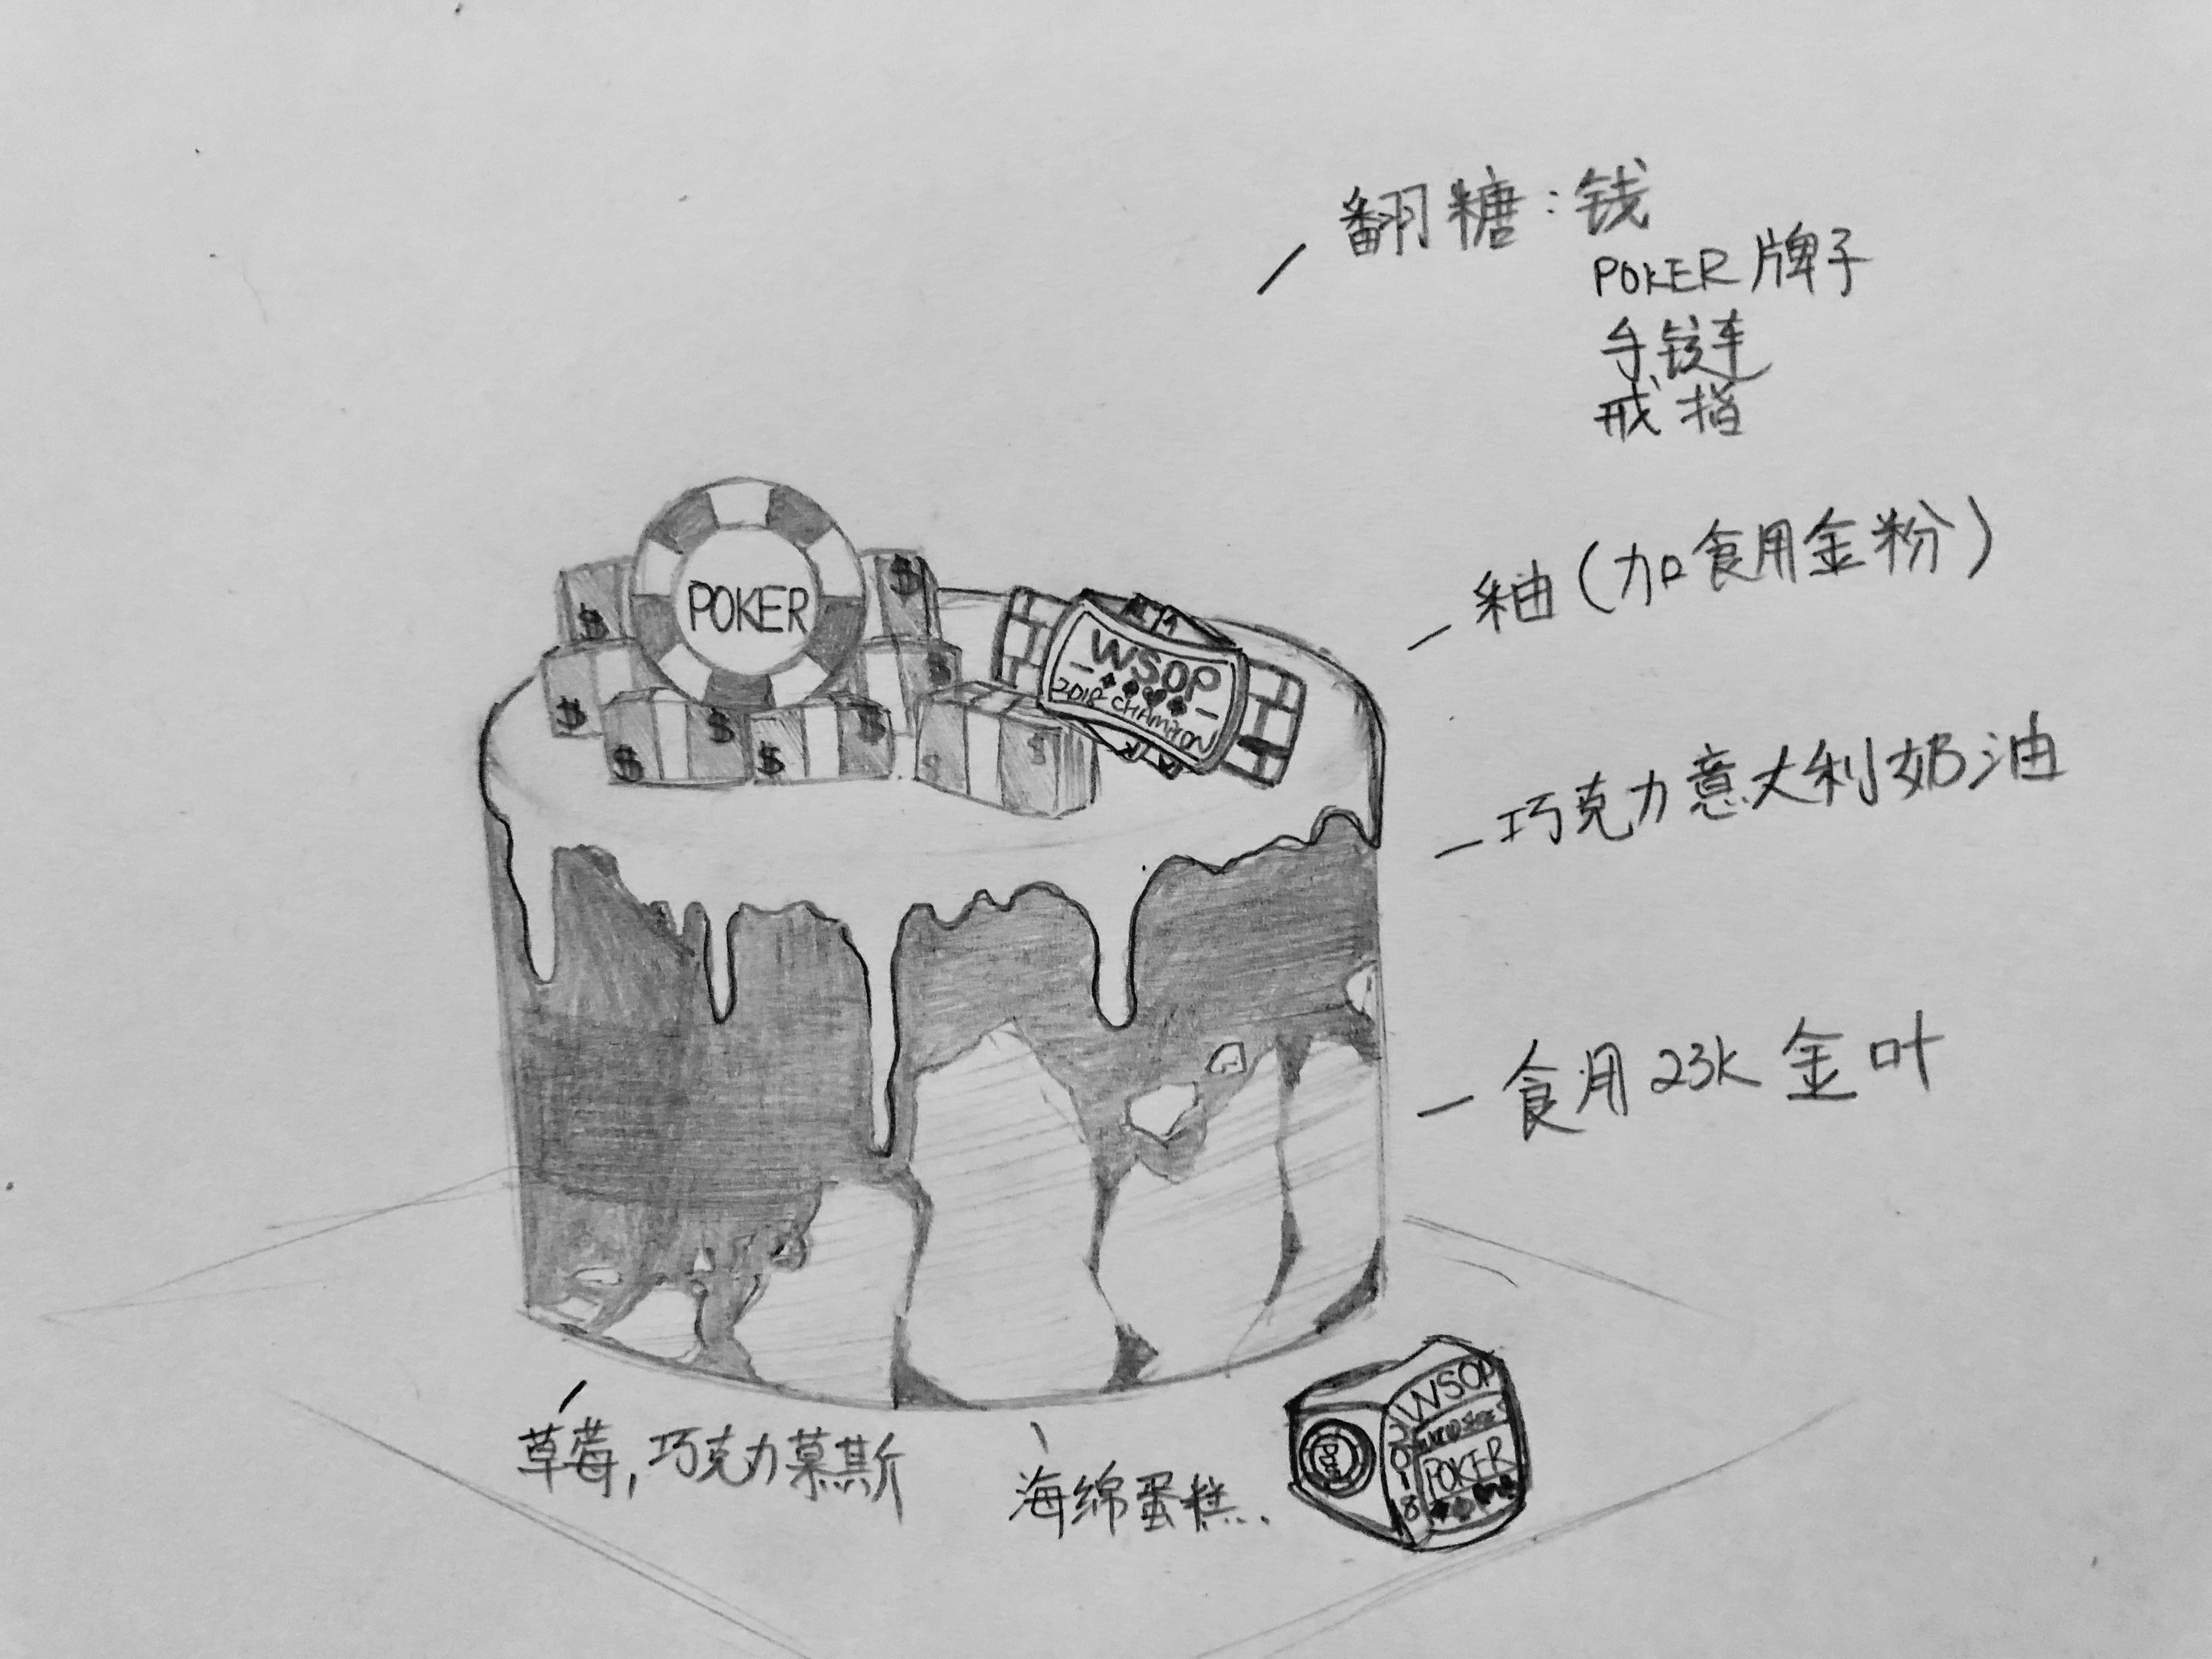 翻糖：钱
POKER 牌子
手链
戒指
釉（加食用金粉）
巧克力意大利奶油
食用 23K 金叶
POKER
$
$
$
$
$
$
$
$
$
$
WSOP
2018 CHAMPION
草莓，巧克力慕斯
海绵蛋糕.
WSOP
POKER
2018